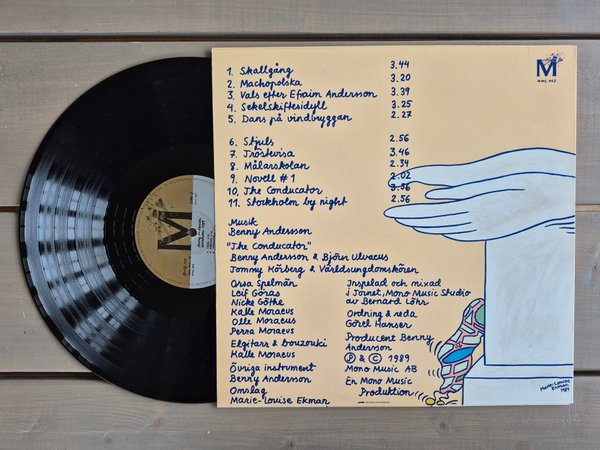 M
1. Skallgång 3.44
2. Machopolska 3.20
3. Vals efter Efraim Andersson 3.39
4. Sekelskiftesidyll 3.25
5. Dans på vindbryggan 2.27
6. Stjuls 2.56
7. Tröstevisa 3.46
8. Målarskolan 2.34
9. Novell #1 2.02
10. The Conducator 3.56
11. Stockholm by night 2.56
Musik
Benny Andersson
"The Conducator"
Benny Andersson & Björn Ulvaeus
Tommy Körberg & Världsungdomskören
Orsa Spelmän
Leif Göras
Nicke Göthe
Kalle Moraeus
Olle Moraeus
Perra Moraeus
Elgitarr & bouzouki
Kalle Moraeus
Övriga instrument
Benny Andersson
Omslag
Marie-Louise Ekman
Inspelad och mixad
i Tornet, Mono Music Studio
av Bernard Löhr
Ordning & reda
Görel Hanser
Producent Benny
Andersson
Ⓟ & © 1989
Mono Music AB
En Mono Music
Produktion
Marie-Louise
Ekman
1989
M